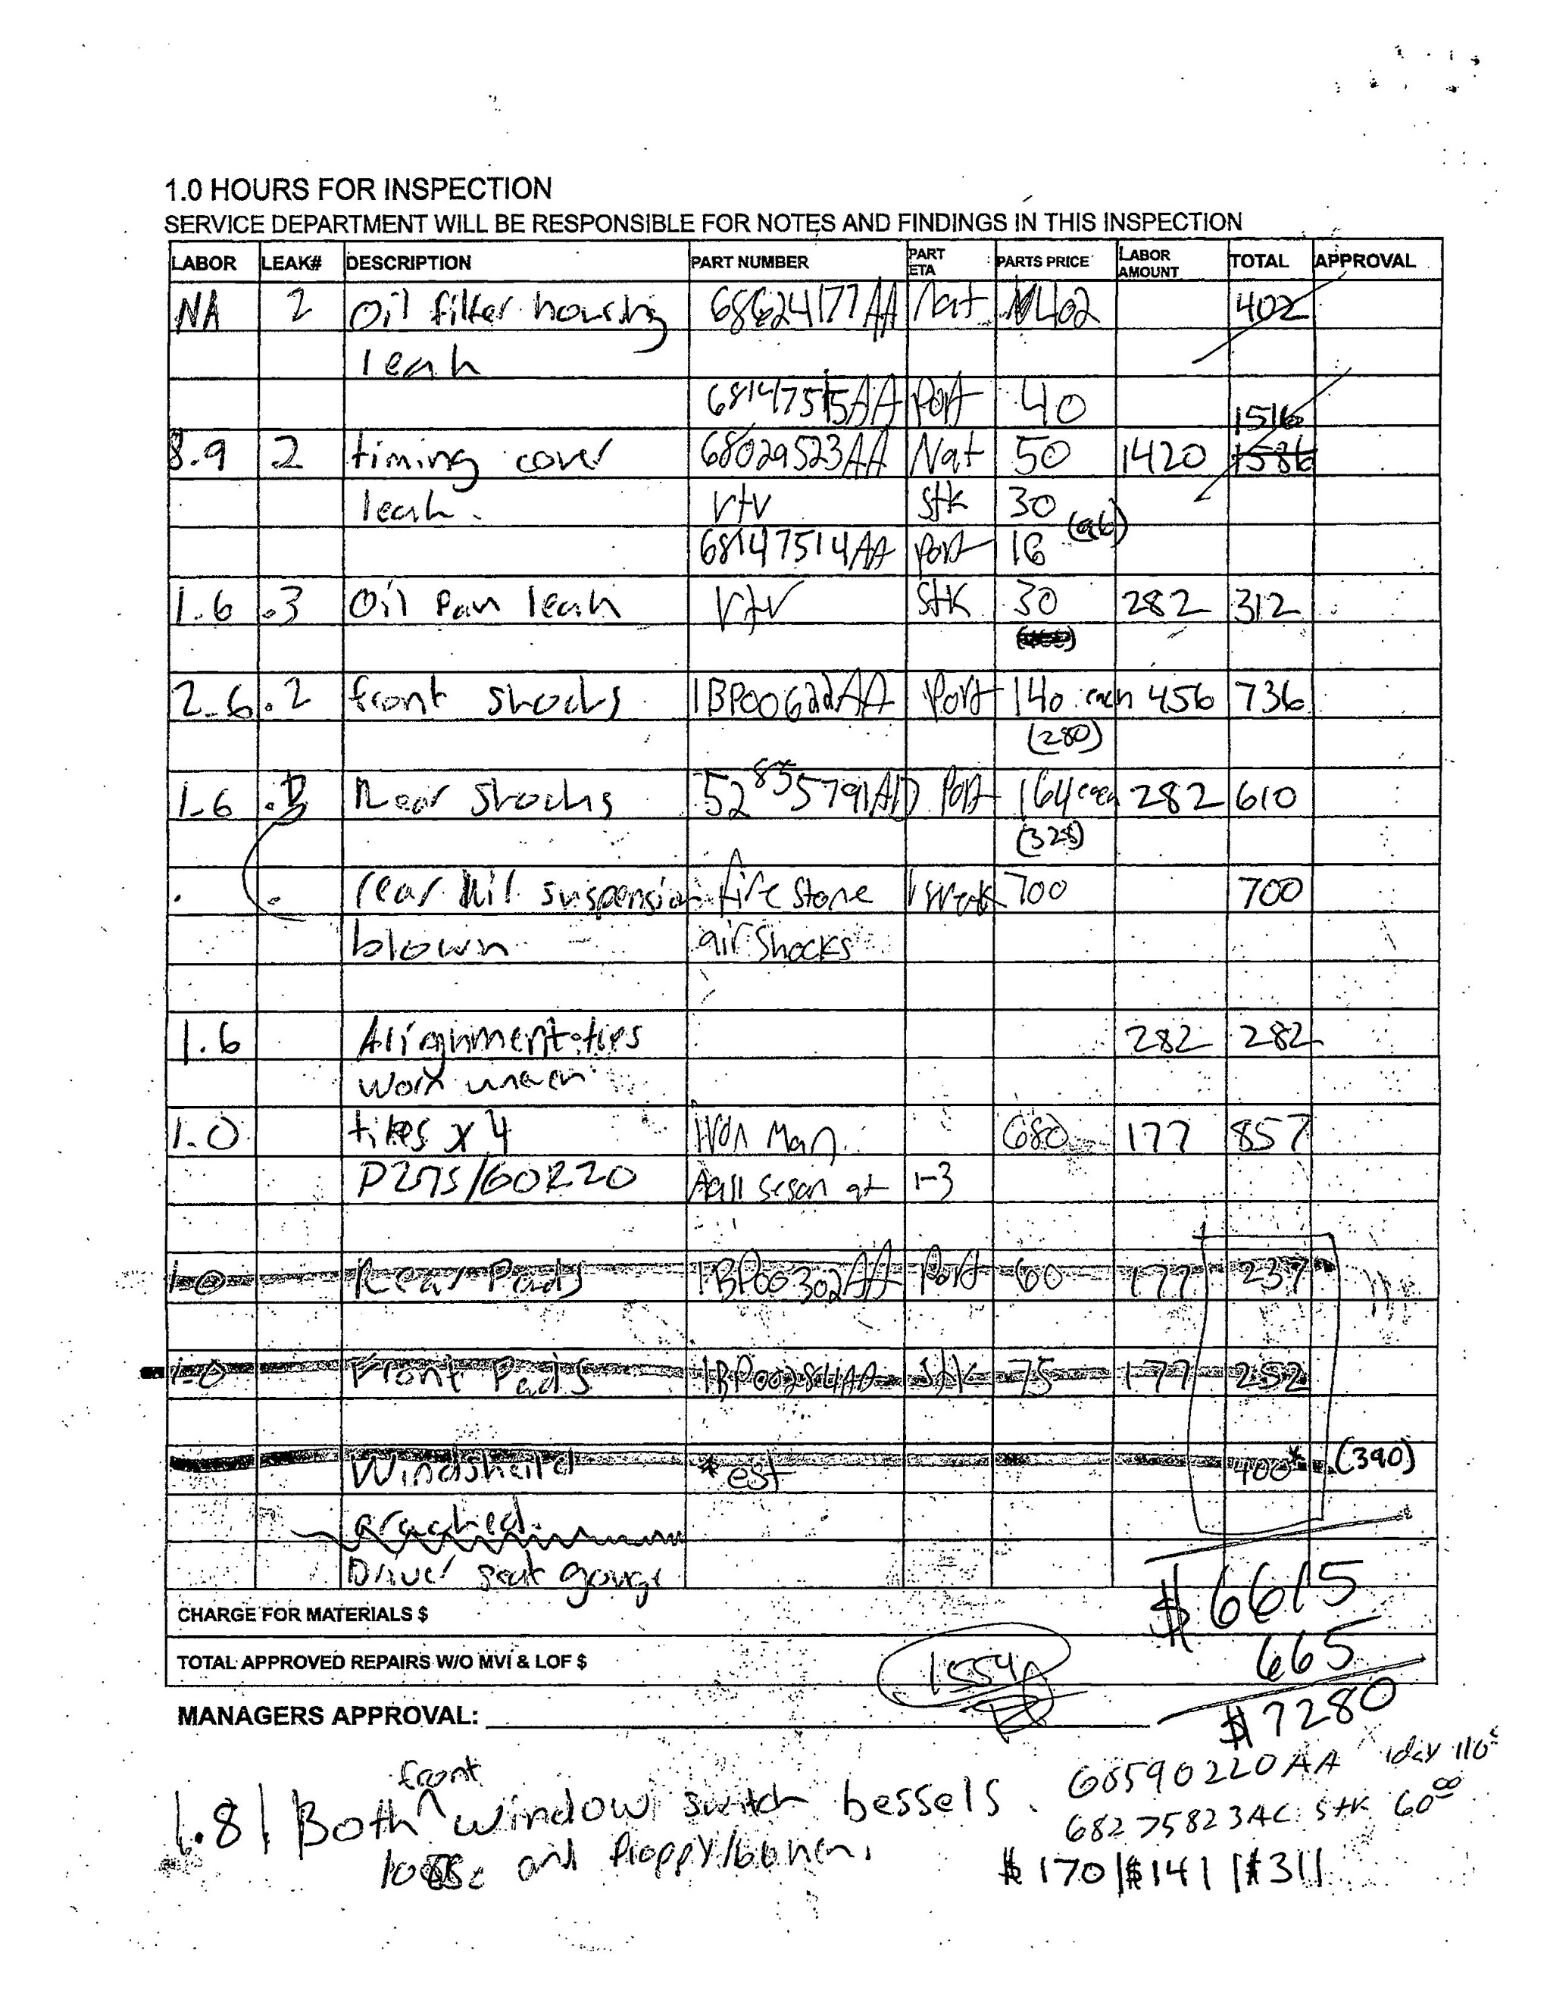 1.0 HOURS FOR INSPECTION
SERVICE DEPARTMENT WILL BE RESPONSIBLE FOR NOTES AND FINDINGS IN THIS INSPECTION
LABOR LEAK# DESCRIPTION PART NUMBER PART ETA PARTS PRICE LABOR AMOUNT TOTAL APPROVAL
NA 2 Oil filter housing 68624177AA Nat 402 402
leak
68147515AA Port 40 1516
8.9 2 timing cover 68029523AA Nat 50 1420 1586
leak. rtv Stk 30
68147514AA Port 16 (96)
1.6 .3 Oil Pan leak rtv Stk 30 282 312
2.6 .2 front shocks 1BP00622AA Port 140 each 456 736
(280)
1.6 Rear Shocks 52855791AD Port 164 each 282 610
(328)
rear Air suspension firestone 1 week 700 700
blown air shocks
1.6 Alignment tires 282 282
worn uneven
1.0 tires x 4 Iron Man 680 177 857
P275/60R20 All seson gt 1-3
1.0 Rear Pads 1BP00302AA Port 60 177 237
1.0 Front Pads 1BP00284AA Stk 75 177 252
Windsheild *est 400* (390)
cracked.
Driver seat gouge
$6615
CHARGE FOR MATERIALS $
TOTAL APPROVED REPAIRS W/O MVI & LOF $ 1554 665
MANAGERS APPROVAL: $7280
1.8 | Both front window switch bessels. 68590220AA 1day 110
loose and floppy/broken. 68275823AC Stk 60.00
$170 | $141 | $311